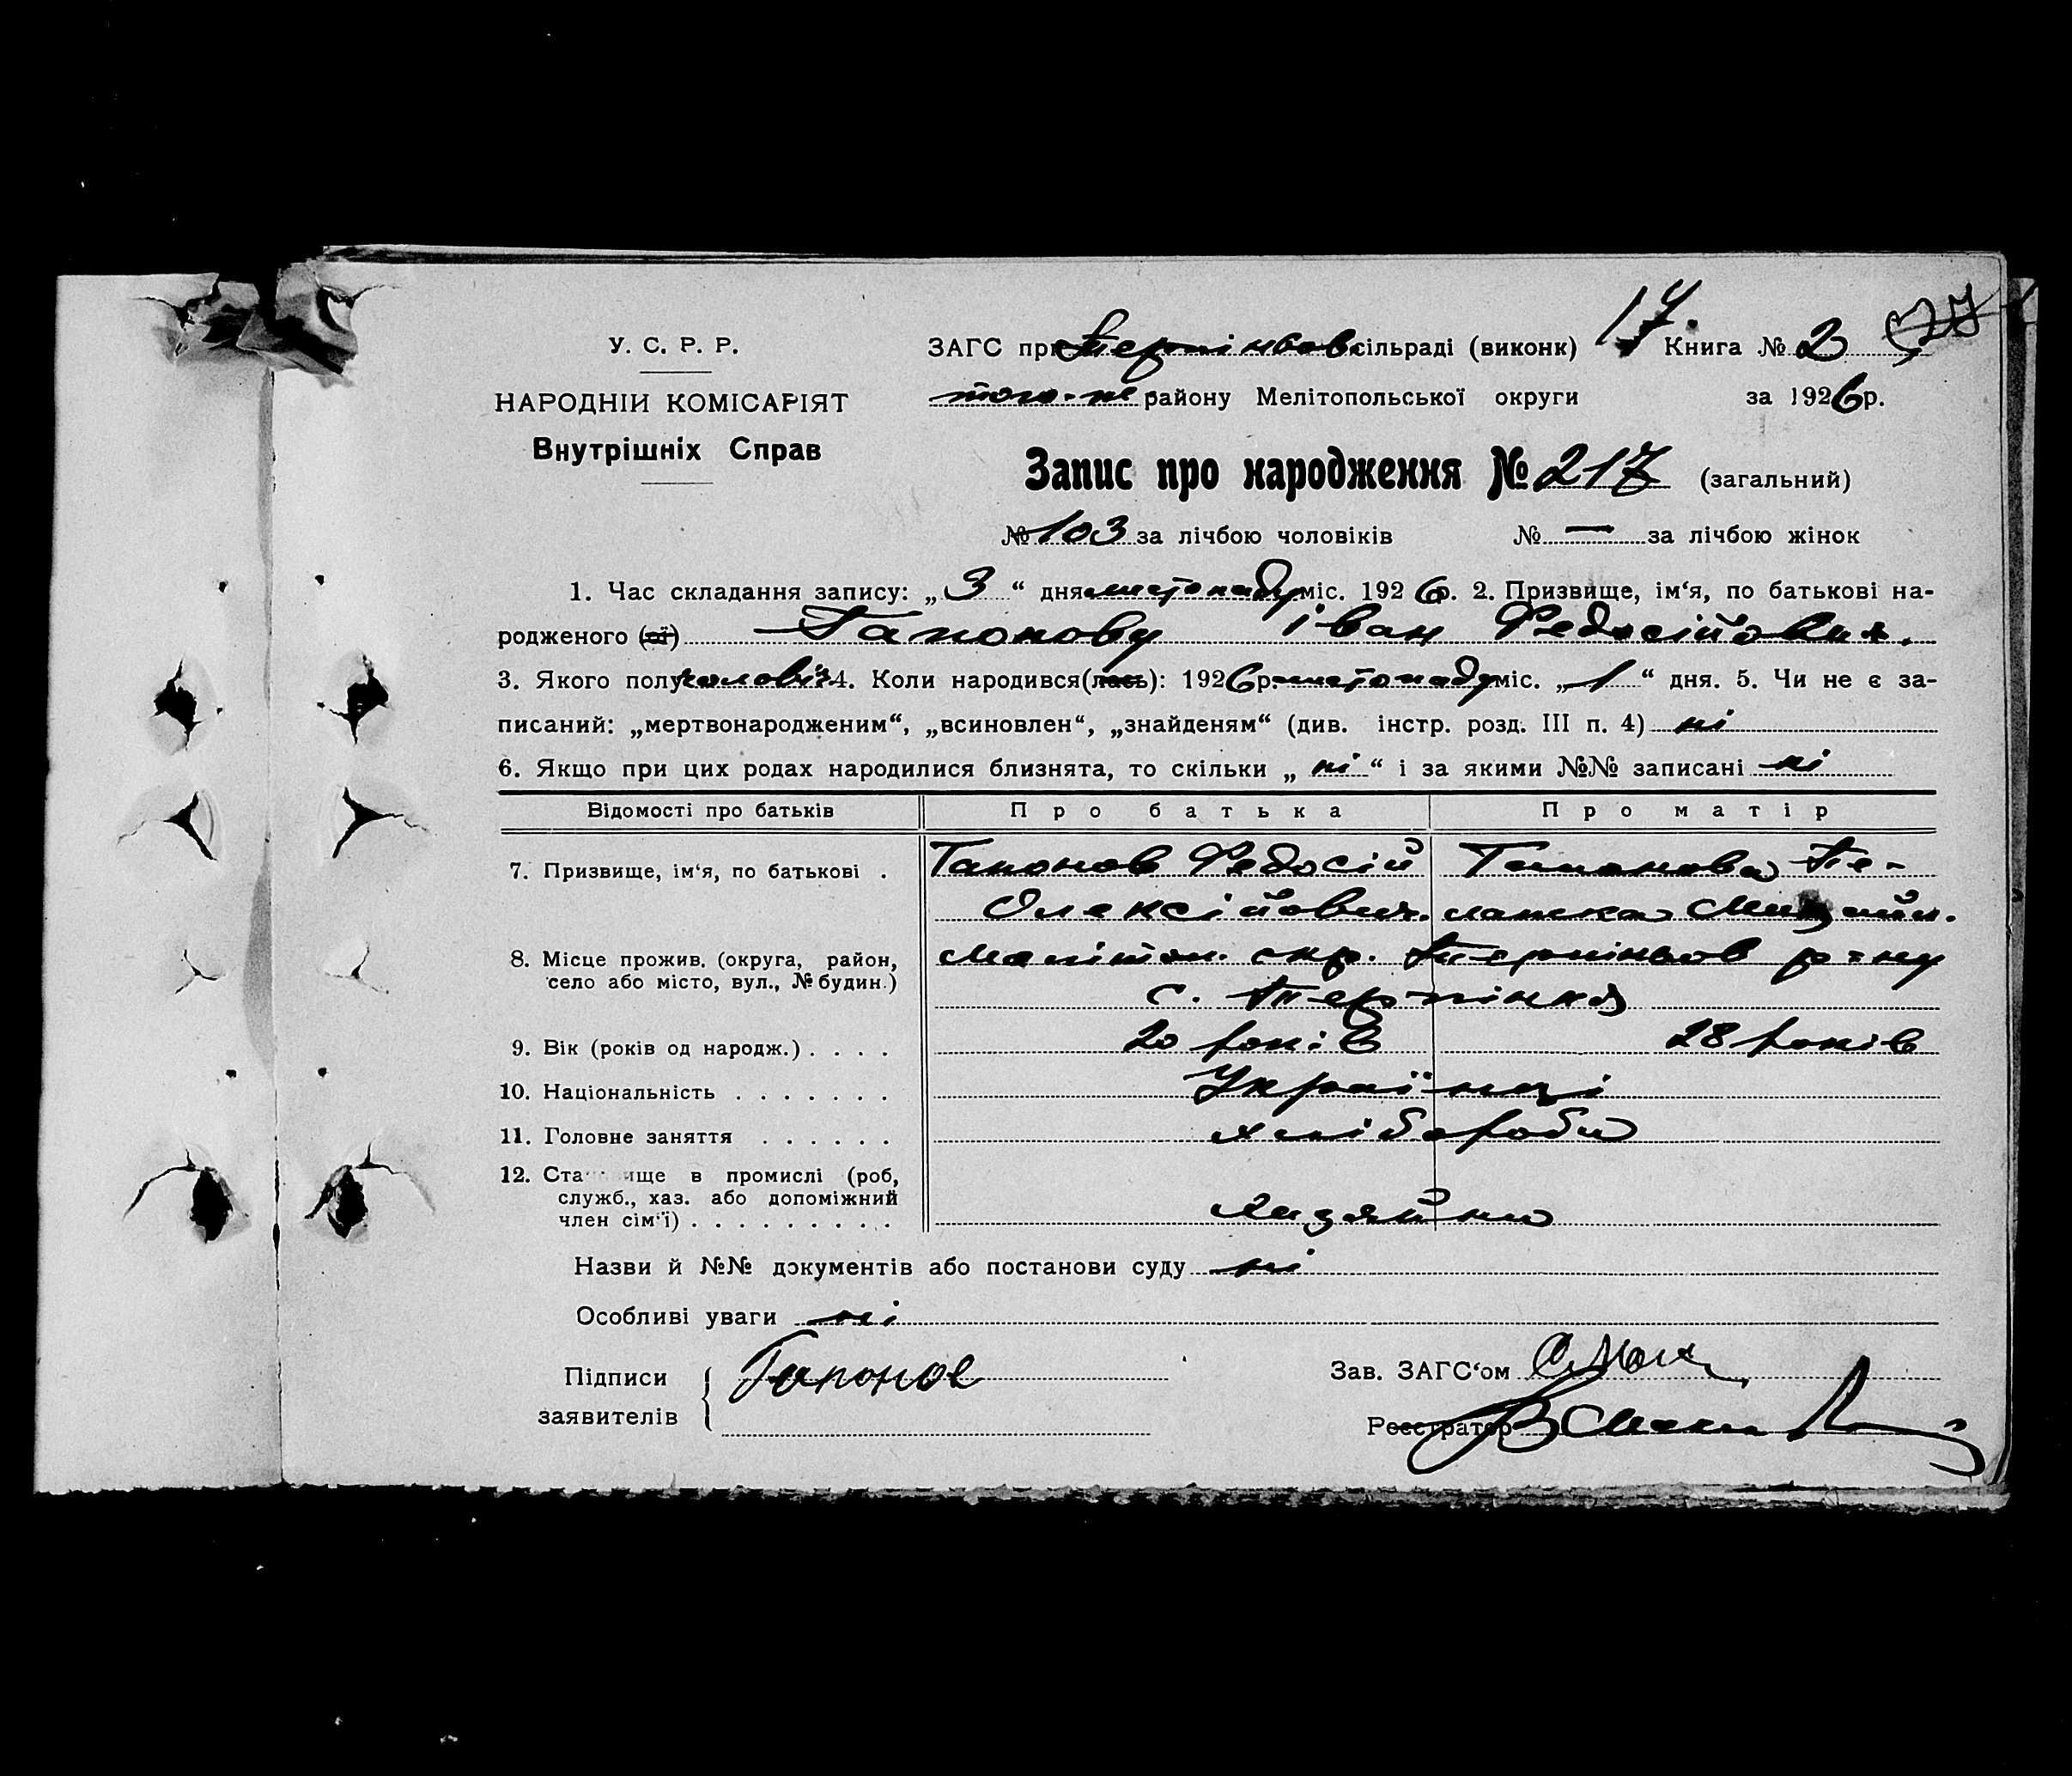 17.
327
У. С. Р. Р.
ЗАГС при Терпіньов сільраді (виконк) Книга № 2
НАРОДНІЙ КОМІСАРІЯТ
того-же району Мелітопольської округи за 1926 р.
Внутрішніх Справ
Запис про народження № 217 (загальний)
№ 103 за лічбою чоловіків № — за лічбою жінок
1. Час складання запису: „ 3 “ дня листопаду міс. 1926 р. 2. Призвище, ім‘я, по батькові на-
родженого (ої) Гапонову Іван Федосійович.
3. Якого полу чоловіч 4. Коли народився(лась): 1926 р. листопаду міс. „ 1 “ дня. 5. Чи не є за-
писаний: „мертвонародженим“, „всиновлен“, „знайденям“ (див. інстр. розд. III п. 4) ні
6. Якщо при цих родах народилися близнята, то скільки „ ні “ і за якими №№ записані ні
Відомості про батьків Про батька Про матір
7. Призвище, ім‘я, по батькові . Гапонов Федосій Гапонова Пе-
Олексійович. лашка
8. Місце прожив. (округа, район, Меліттоп. окр. Терпіньов р-ну
село або місто, вул., № будин.) с. Терпіння
9. Вік (років од народж.) . . . . 20 років 28 років
10. Національність . . . . . . . Українці
11. Головне заняття . . . . . . хлібороби
12. Ста ище в промислі (роб,
служб., хаз. або допоміжний
член сім‘ї) . . . . . . . . . Хазяйни
Назви й №№ документів або постанови суду ні
Особливі уваги ні
Підписи Гапонов Зав. ЗАГС‘ом
заявителів Реєстратор